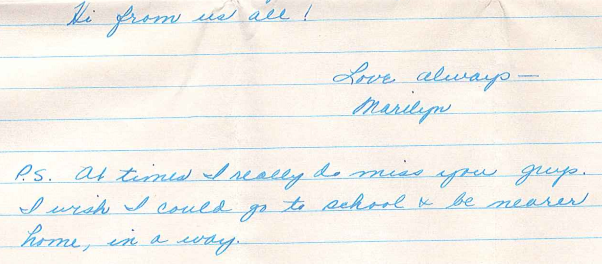 Hi from us all!
Love always—
Marilyn
P.S. At times I really do miss you guys.
I wish I could go to school & be nearer
home, in a way.